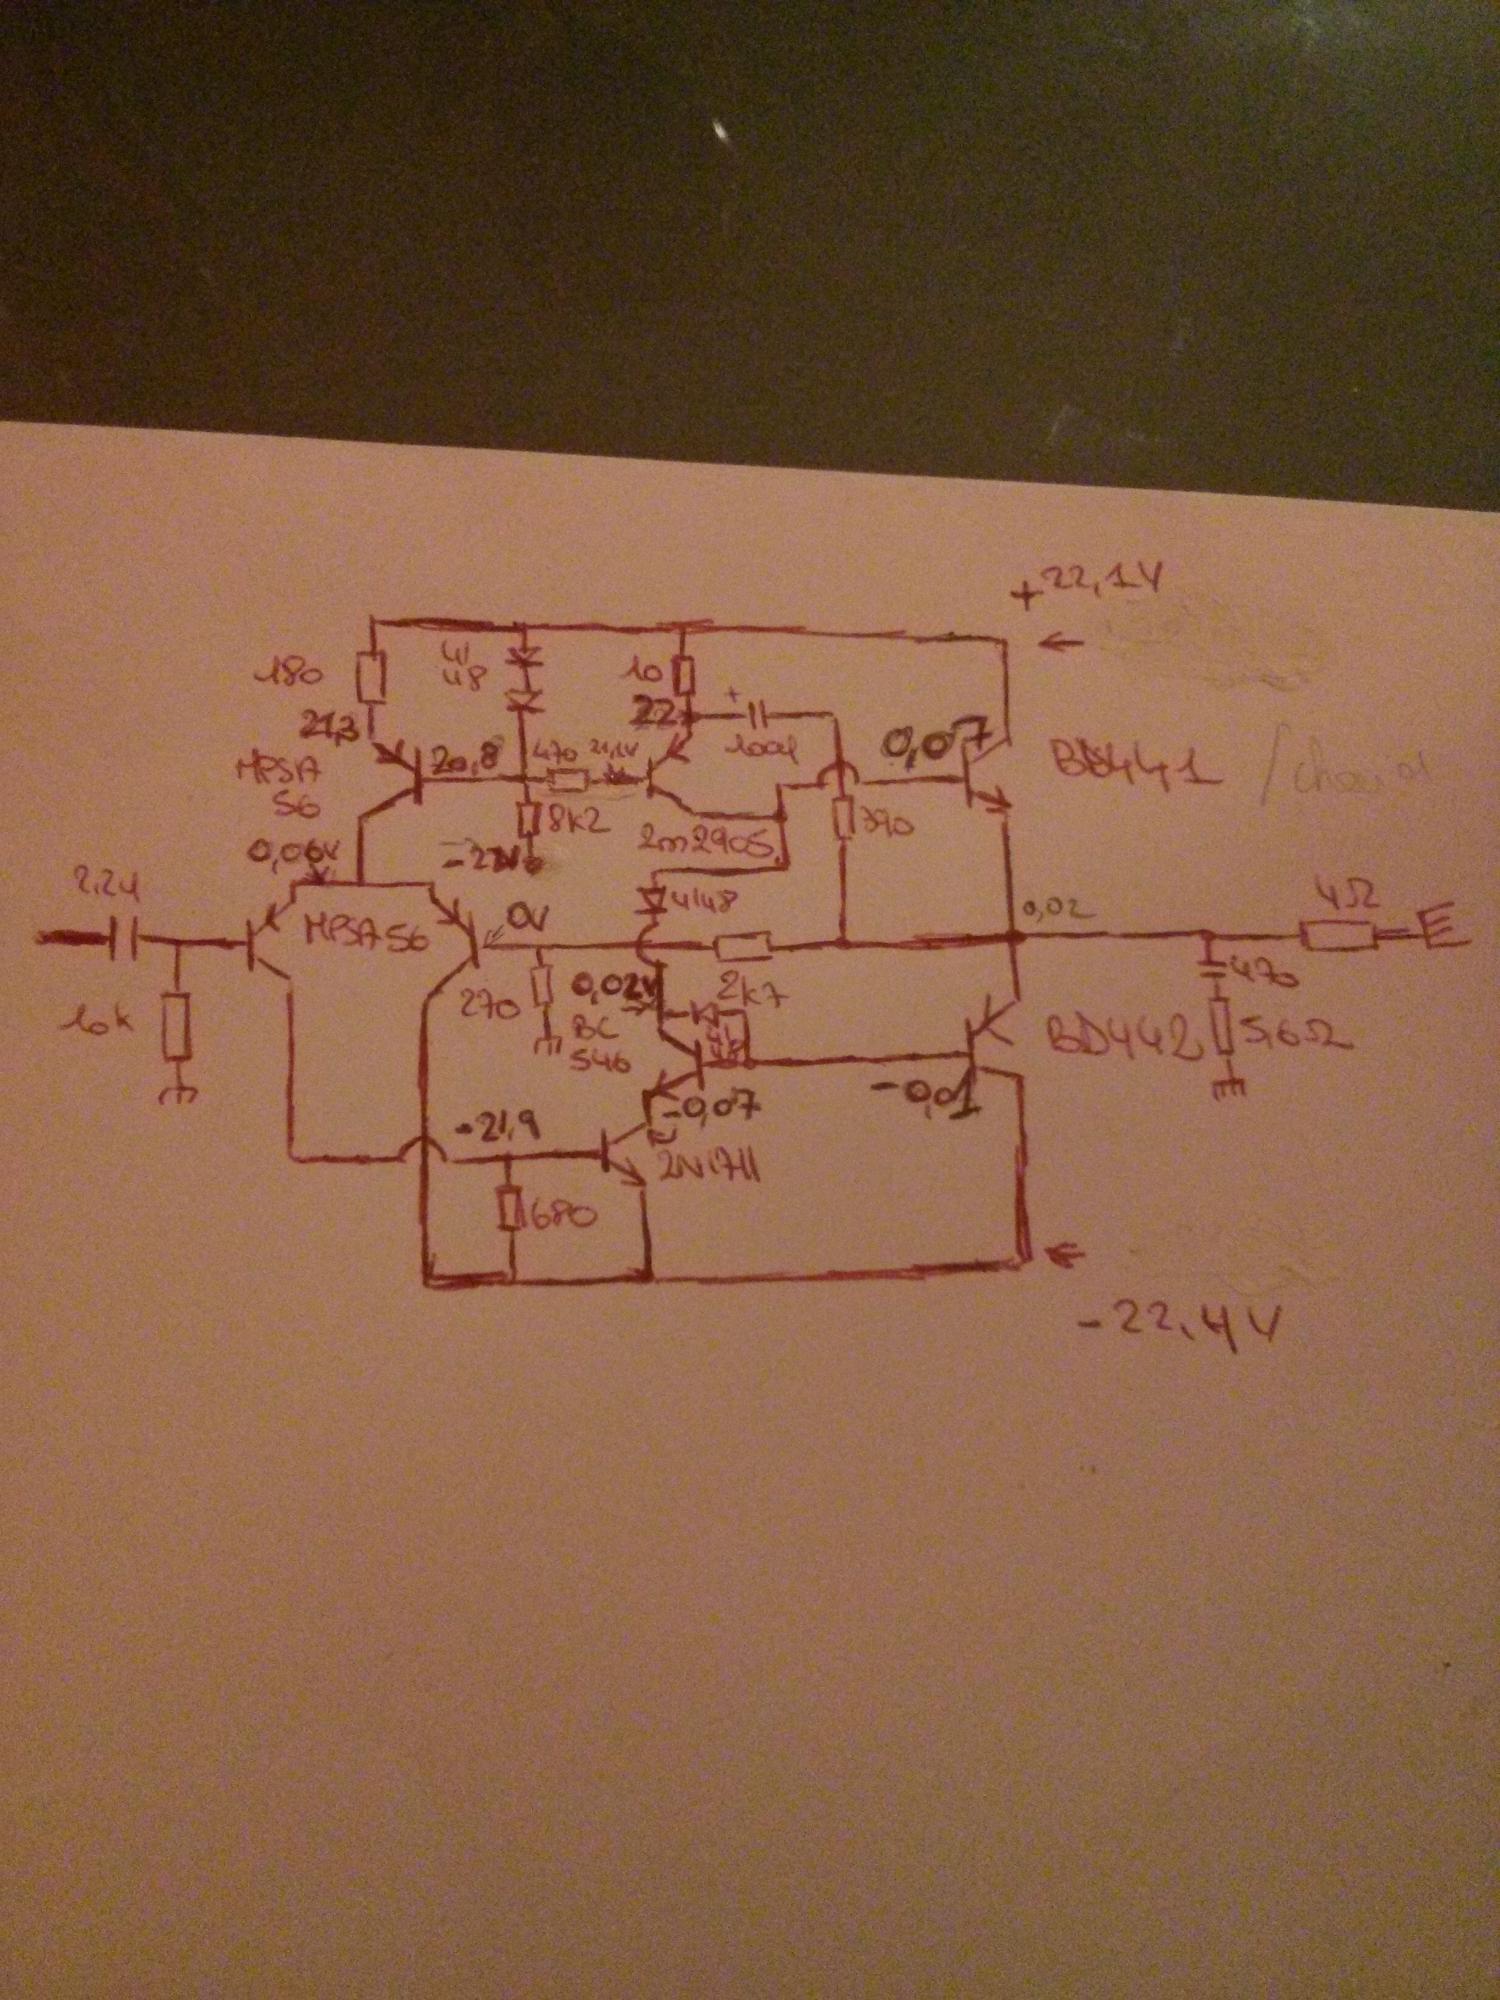 +22,1V
180
41
48
10
21,3
22
100µ
0,07
BD441
MPSA
56
20,8
470
21,1V
8k2
2n2905
390
0,06V
-22V
2,2µ
4148
0,02
4Ω
MPSA56
0V
10k
270
0,02V
2k7
470
BC
546
BD442
5,6Ω
-0,07
-0,01
-21,9
2N1711
680
-22,4V